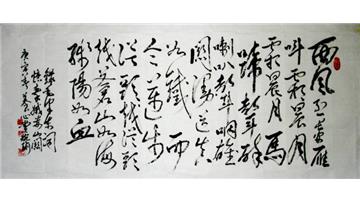 西风烈 长空雁
叫霜晨月
霜晨月 马
蹄声碎
喇叭声咽 雄
关漫道真
如铁 而
今迈步
从头越 从头
越 苍山如海
残阳如血
录毛泽东词
忆秦娥娄山关